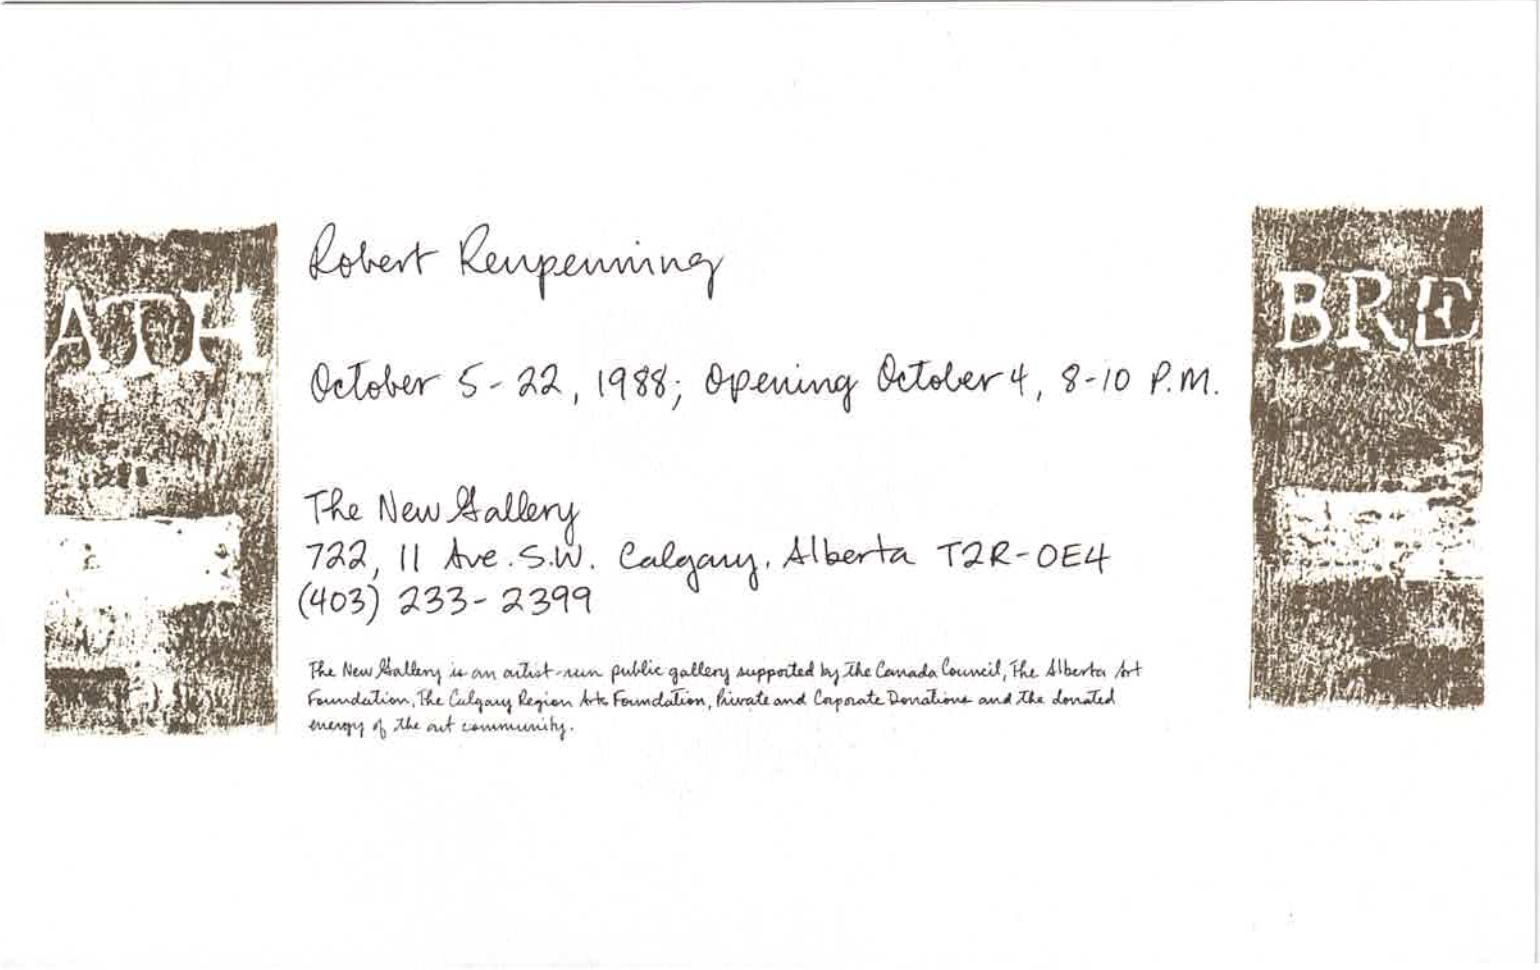 ATH
Robert Reupenning
October 5-22, 1988; Opening October 4, 8-10 P.M.
The New Gallery
722, 11 Ave. S.W. Calgary, Alberta T2R-0E4
(403) 233-2399
The New Gallery is an artist-run public gallery supported by the Canada Council, The Alberta Art
Foundation, The Calgary Region Arts Foundation, Private and Corporate Donations and the donated
energy of the art community.
BRE